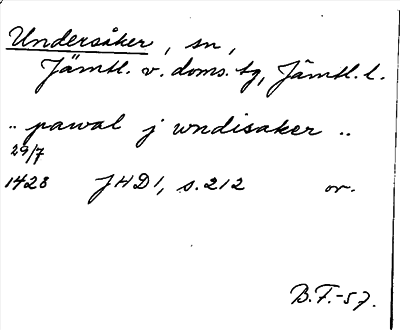 Undersåker, sn,
Jämtl. v. doms. tg, Jämtl. l.
.. pawal j wndisaker ..
29/7
1428 JHD 1, s. 212 or.
B.F.-57.